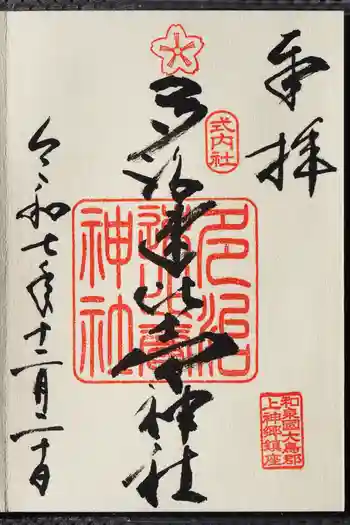 奉拝
式内社
多治速比売神社
多治速比賣神社
和泉國大鳥郡
上神郷鎮座
令和七年十二月二十日